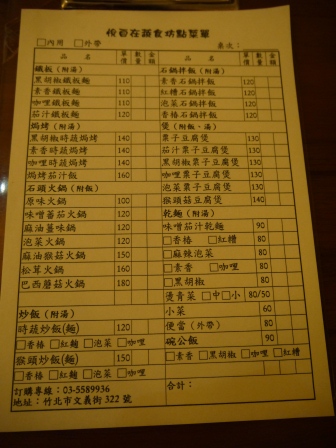 悅真在蔬食坊點菜單
□內用 □外帶 桌次:
品名 單價 數量 金額 品名 單價 數量 金額
鐵板(附湯)
黑胡椒鐵板麵 110
素香鐵板麵 110
咖哩鐵板麵 110
茄汁鐵板麵 110
焗烤(附湯)
黑胡椒時蔬焗烤 140
素香時蔬焗烤 140
咖哩時蔬焗烤 140
焗烤茄汁飯 160
石頭火鍋(附飯)
原味火鍋 100
味噌蕃茄火鍋 120
麻油薑味鍋 120
泡菜火鍋 120
麻油猴菇火鍋 150
松茸火鍋 160
巴西蘑菇火鍋 180
炒飯(附湯)
時蔬炒飯(麵) 120
□香椿 □紅糟 □泡菜 □咖哩
猴頭炒飯(麵) 150
□香椿 □紅糟 □泡菜 □咖哩
訂購專線:03-5589936
地址:竹北市文義街322號
石鍋拌飯(附湯)
素香石鍋拌飯 120
紅糟石鍋拌飯 120
泡菜石鍋拌飯 120
香椿石鍋拌飯 120
煲(附飯、湯)
栗子豆腐煲 130
茄汁栗子豆腐煲 130
黑胡椒栗子豆腐煲 130
咖哩栗子豆腐煲 130
泡菜栗子豆腐煲 130
猴頭菇豆腐煲 150
乾麵(附湯)
味噌茄汁乾麵 90
□香椿 □紅糟 80
□麻辣泡菜 80
□素香 □咖哩 80
□黑胡椒 80
燙青菜 □中□小 80/50
小菜 60
便當(外帶) 80
碗公飯 90
□素香 □黑胡椒 □咖哩 □紅糟
合計: